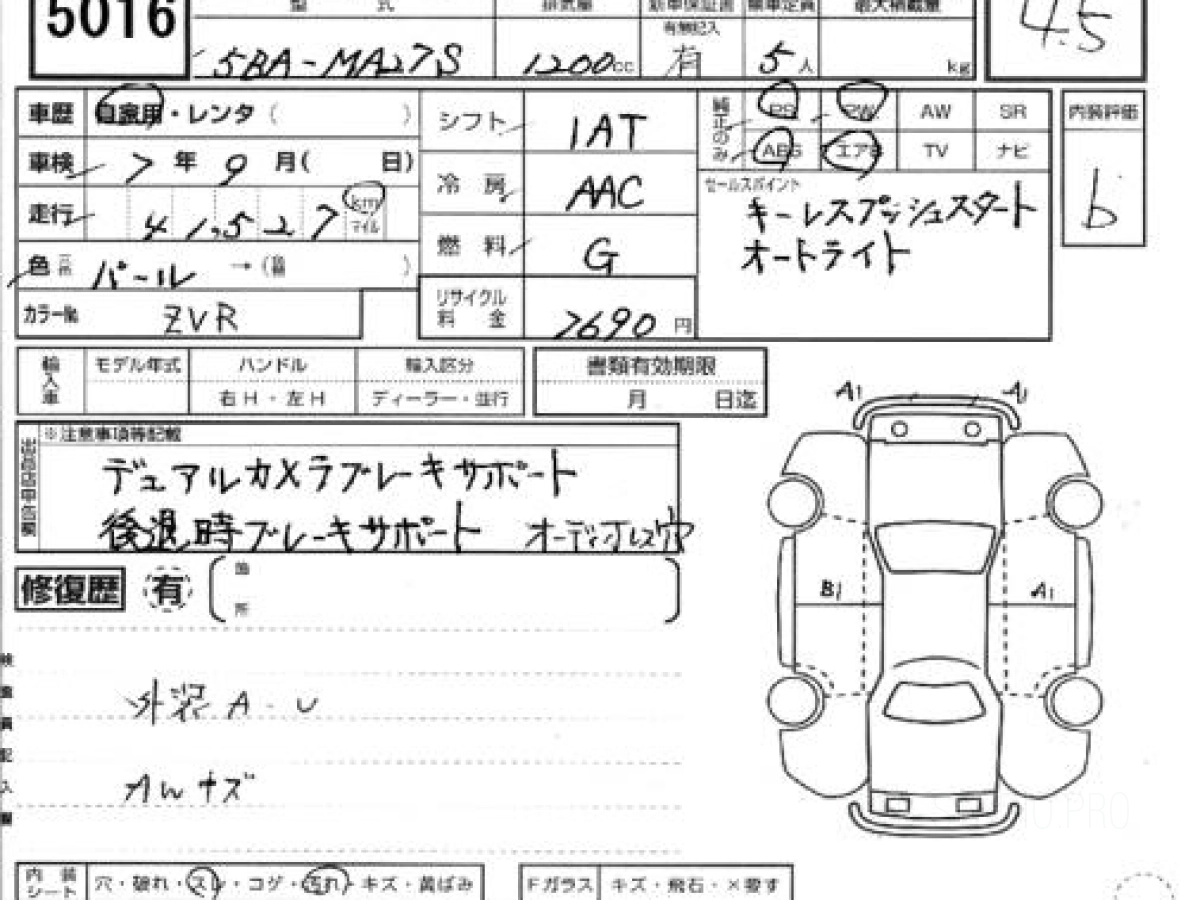 5016
型 式 排気量 新車保証書 乗車定員 最大積載量
有無記入
5BA-MA27S 1200cc 有 5人 kg
4.5
車歴 自家用・レンタ ( )
シフト IAT
純正のみ PS PW AW SR
ABS エアB TV ナビ
内装評価
b
車検 7年 9月( 日)
冷房 AAC
セールスポイント
キーレスプッシュスタート
オートライト
走行 41,527 km マイル
燃料 G
色 パール →( )
リサイクル料金 7690円
カラーNo. ZVR
輸入車 モデル年式 ハンドル 輸入区分
右H・左H ディーラー・並行
書類有効期限
月 日迄
出品店申告欄
※注意事項等記載
デュアルカメラブレーキサポート
後退時ブレーキサポート オーディオレス穴
修復歴 有 箇所
検査員記入欄
外装 A・U
キズ
A1 A1
B1 A1
内装シート 穴・破れ・スレ・コゲ・汚れ・キズ・黄ばみ
Fガラス キズ・飛石・×要す